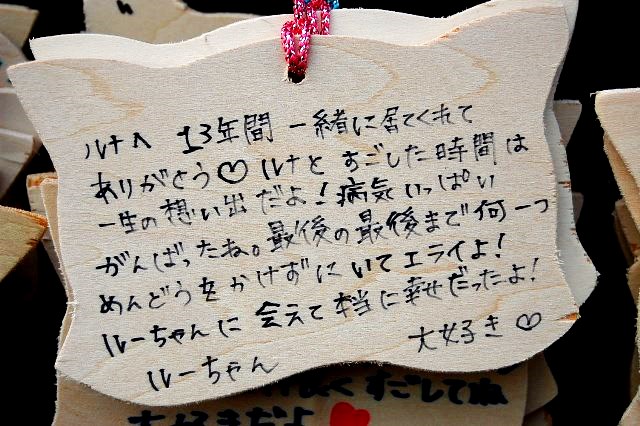 ルナへ 13年間 一緒に居てくれて
ありがとう♡ ルナと すごした時間は
一生の想い出だよ！病気いっぱい
がんばったね。最後の最後まで何一つ
めんどうをかけずにいてエライよ！
ルーちゃんに 会えて本当に幸せだったよ！
ルーちゃん 大好き♡
すごしてね
大好きだよ